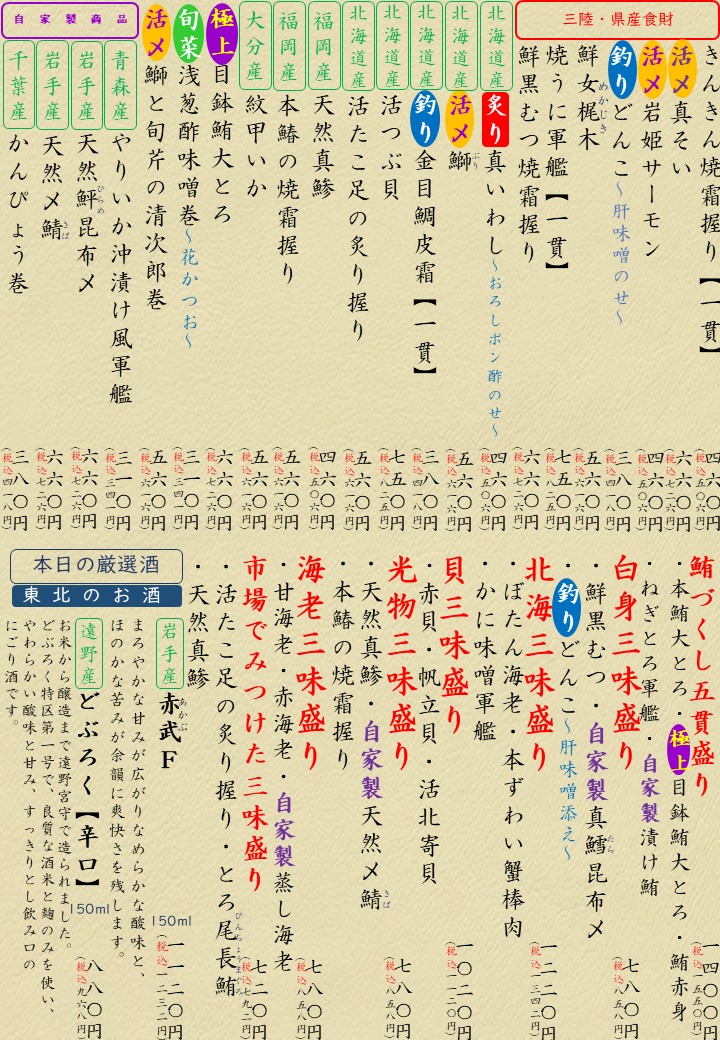 三陸・県産食財
きんきん焼霜握り【一貫】
四六〇円
(税込五〇六円)
活〆真そい
六六〇円
(税込七二六円)
活〆岩姫サーモン
四六〇円
(税込五〇六円)
釣りどんこ～肝味噌のせ～
三八〇円
(税込四一八円)
鮮女梶木
めかじき
五六〇円
(税込六一六円)
焼うに軍艦【一貫】
七五〇円
(税込八二五円)
鮮黒むつ焼霜握り
六六〇円
(税込七二六円)
北海道産
炙り真いわし～おろしポン酢のせ～
四六〇円
(税込五〇六円)
北海道産
活〆鰤
ぶり
五六〇円
(税込六一六円)
北海道産
釣り金目鯛皮霜【一貫】
三八〇円
(税込四一八円)
北海道産
活つぶ貝
七五〇円
(税込八二五円)
北海道産
活たこ足の炙り握り
五六〇円
(税込六一六円)
福岡産
天然真鯵
四六〇円
(税込五〇六円)
福岡産
本鰆の焼霜握り
五六〇円
(税込六一六円)
大分産
紋甲いか
五六〇円
(税込六一六円)
極上目鉢鮪大とろ
六六〇円
(税込七二六円)
旬菜浅葱酢味噌巻～花かつお～
三一〇円
(税込三四一円)
活〆鰤と旬芹の清次郎巻
五六〇円
(税込六一六円)
自家製商品
青森産
やりいか沖漬け風軍艦
三一〇円
(税込三四一円)
岩手産
天然鮃昆布〆
ひらめ
六六〇円
(税込七二六円)
岩手産
天然〆鯖
さば
六六〇円
(税込七二六円)
千葉産
かんぴょう巻
三八〇円
(税込四一八円)
鮪づくし五貫盛り
・本鮪大とろ・極上目鉢鮪大とろ・鮪赤身
・ねぎとろ軍艦・自家製漬け鮪
一四〇〇円
(税込一五四〇円)
白身三味盛り
・鮮黒むつ・自家製真鱈昆布〆
たら
・釣りどんこ～肝味噌添え～
七八〇円
(税込八五八円)
北海三味盛り
・ぼたん海老・本ずわい蟹棒肉
・かに味噌軍艦
一二二〇円
(税込一三四二円)
貝三味盛り
・赤貝・帆立貝・活北寄貝
一〇二〇円
(税込一一二二円)
光物三味盛り
・天然真鯵・自家製天然〆鯖
さば
・本鰆の焼霜握り
七八〇円
(税込八五八円)
海老三味盛り
・甘海老・赤海老・自家製蒸し海老
七八〇円
(税込八五八円)
市場でみつけた三味盛り
・活たこ足の炙り握り・とろ尾長鮪
びんちょうまぐろ
・天然真鯵
七二〇円
(税込七九二円)
本日の厳選酒
東北のお酒
岩手産
赤武F
あかぶ
150ml
一一二〇円
(税込一二三二円)
まろやかな甘みが広がりなめらかな酸味と、
ほのかな苦みが余韻に爽快さを残します。
遠野産
どぶろく【辛口】
150ml
八八〇円
(税込九六八円)
お米から醸造まで遠野宮守で造られました。
どぶろく特区第一号で、良質な酒米と麹のみを使い、
やわらかい酸味と甘み、すっきりとし飲み口の
にごり酒です。